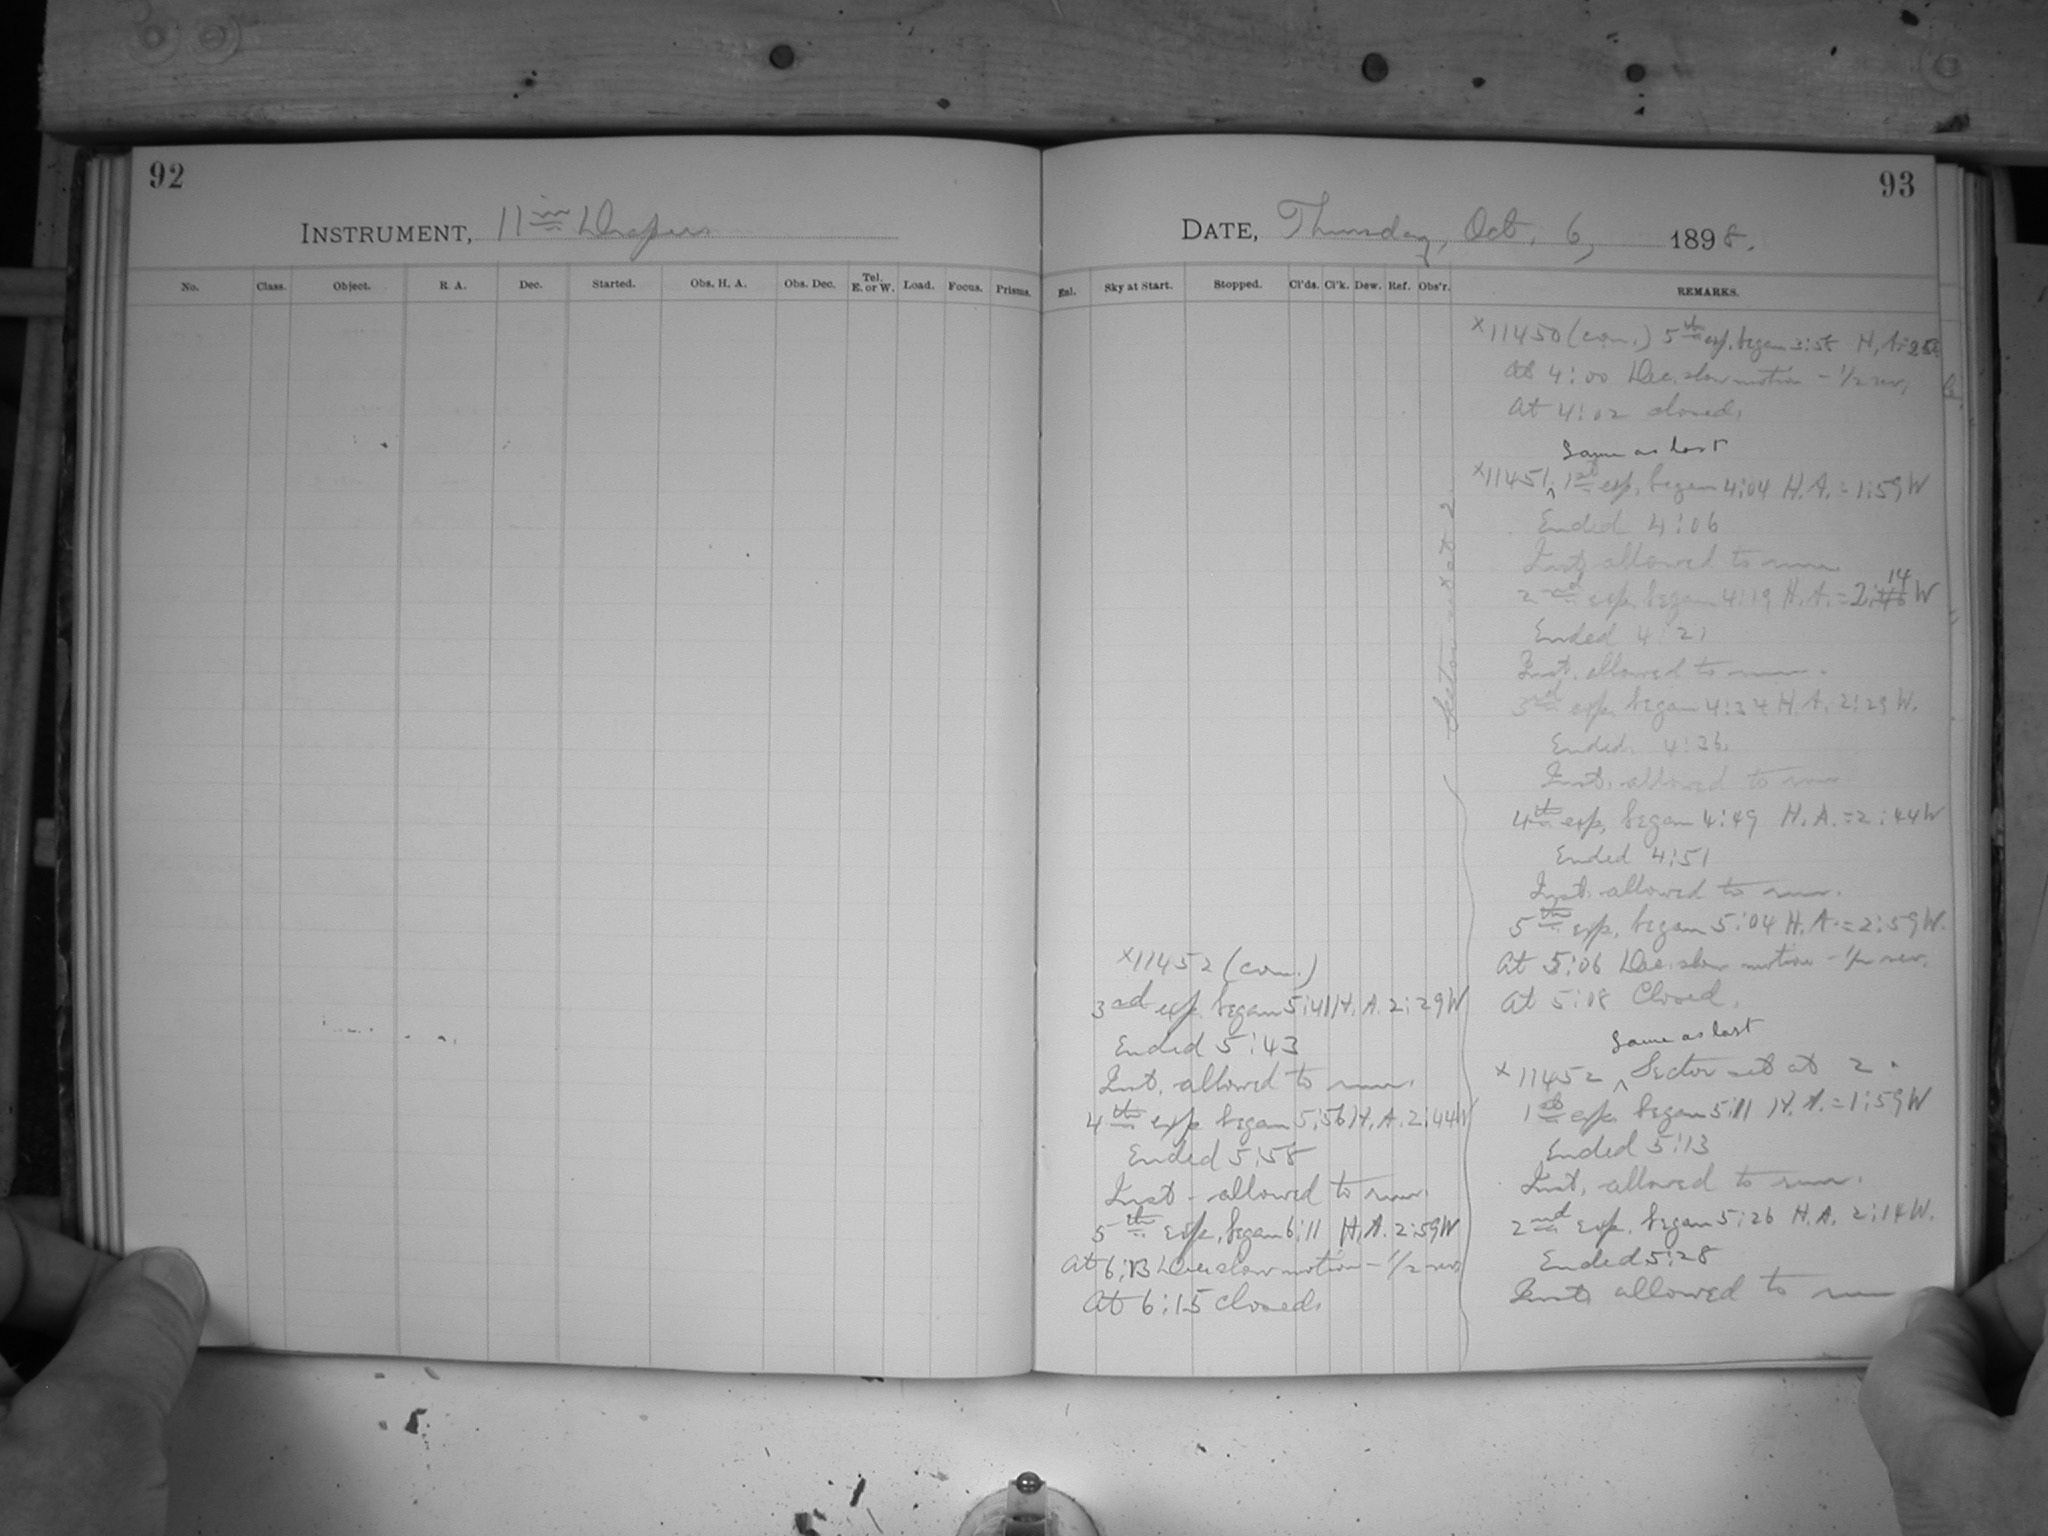 92
INSTRUMENT, 11 in Draper
No. Class. Object. R. A. Dec. Started. Obs. H. A. Obs. Dec. Tel. E. or W. Load. Focus. Prisms.
93
DATE, Thursday, Oct. 6, 1898.
Enl. Sky at Start. Stopped. Cl'ds. Cl'k. Dew. Ref. Obs'r. REMARKS.
x11450 (con.) 5th exp. began 3:58 H.A.
At 4:00 Dec. slow motion - 1/2 rev.
At 4:02 closed.
Same as last
x11451 ^ 1st exp. began 4:04 H.A. = 1:59 W
Ended 4:06
Inst. allowed to run
2nd exp. began 4:19 H.A. = 2:14 W
Ended 4:21
Inst. allowed to run.
3rd exp. began 4:34 H.A. 2:29 W.
Ended 4:36.
Inst. allowed to run
4th exp. began 4:49 H.A. = 2:44 W
Ended 4:51
Inst. allowed to run.
5th exp. began 5:04 H.A. = 2:59 W.
At 5:06 Dec. slow motion - 1/2 rev.
At 5:08 Closed.
Same as last
x11452 ^ Sector set at 2.
1st exp. began 5:11 H.A. = 1:59 W
Ended 5:13
Inst. allowed to run.
2nd exp. began 5:26 H.A. 2:14 W.
Ended 5:28
Inst. allowed to run
Sector set at 2
x11452 (con.)
3rd exp. began 5:41 H.A. 2:29 W
Ended 5:43
Inst. allowed to run.
4th exp began 5:56 H.A. 2:44 W
Ended 5:58
Inst - allowed to run.
5th exp. began 6:11 H.A. 2:59 W
At 6:13 Dec. slow motion - 1/2 rev.
At 6:15 closed.